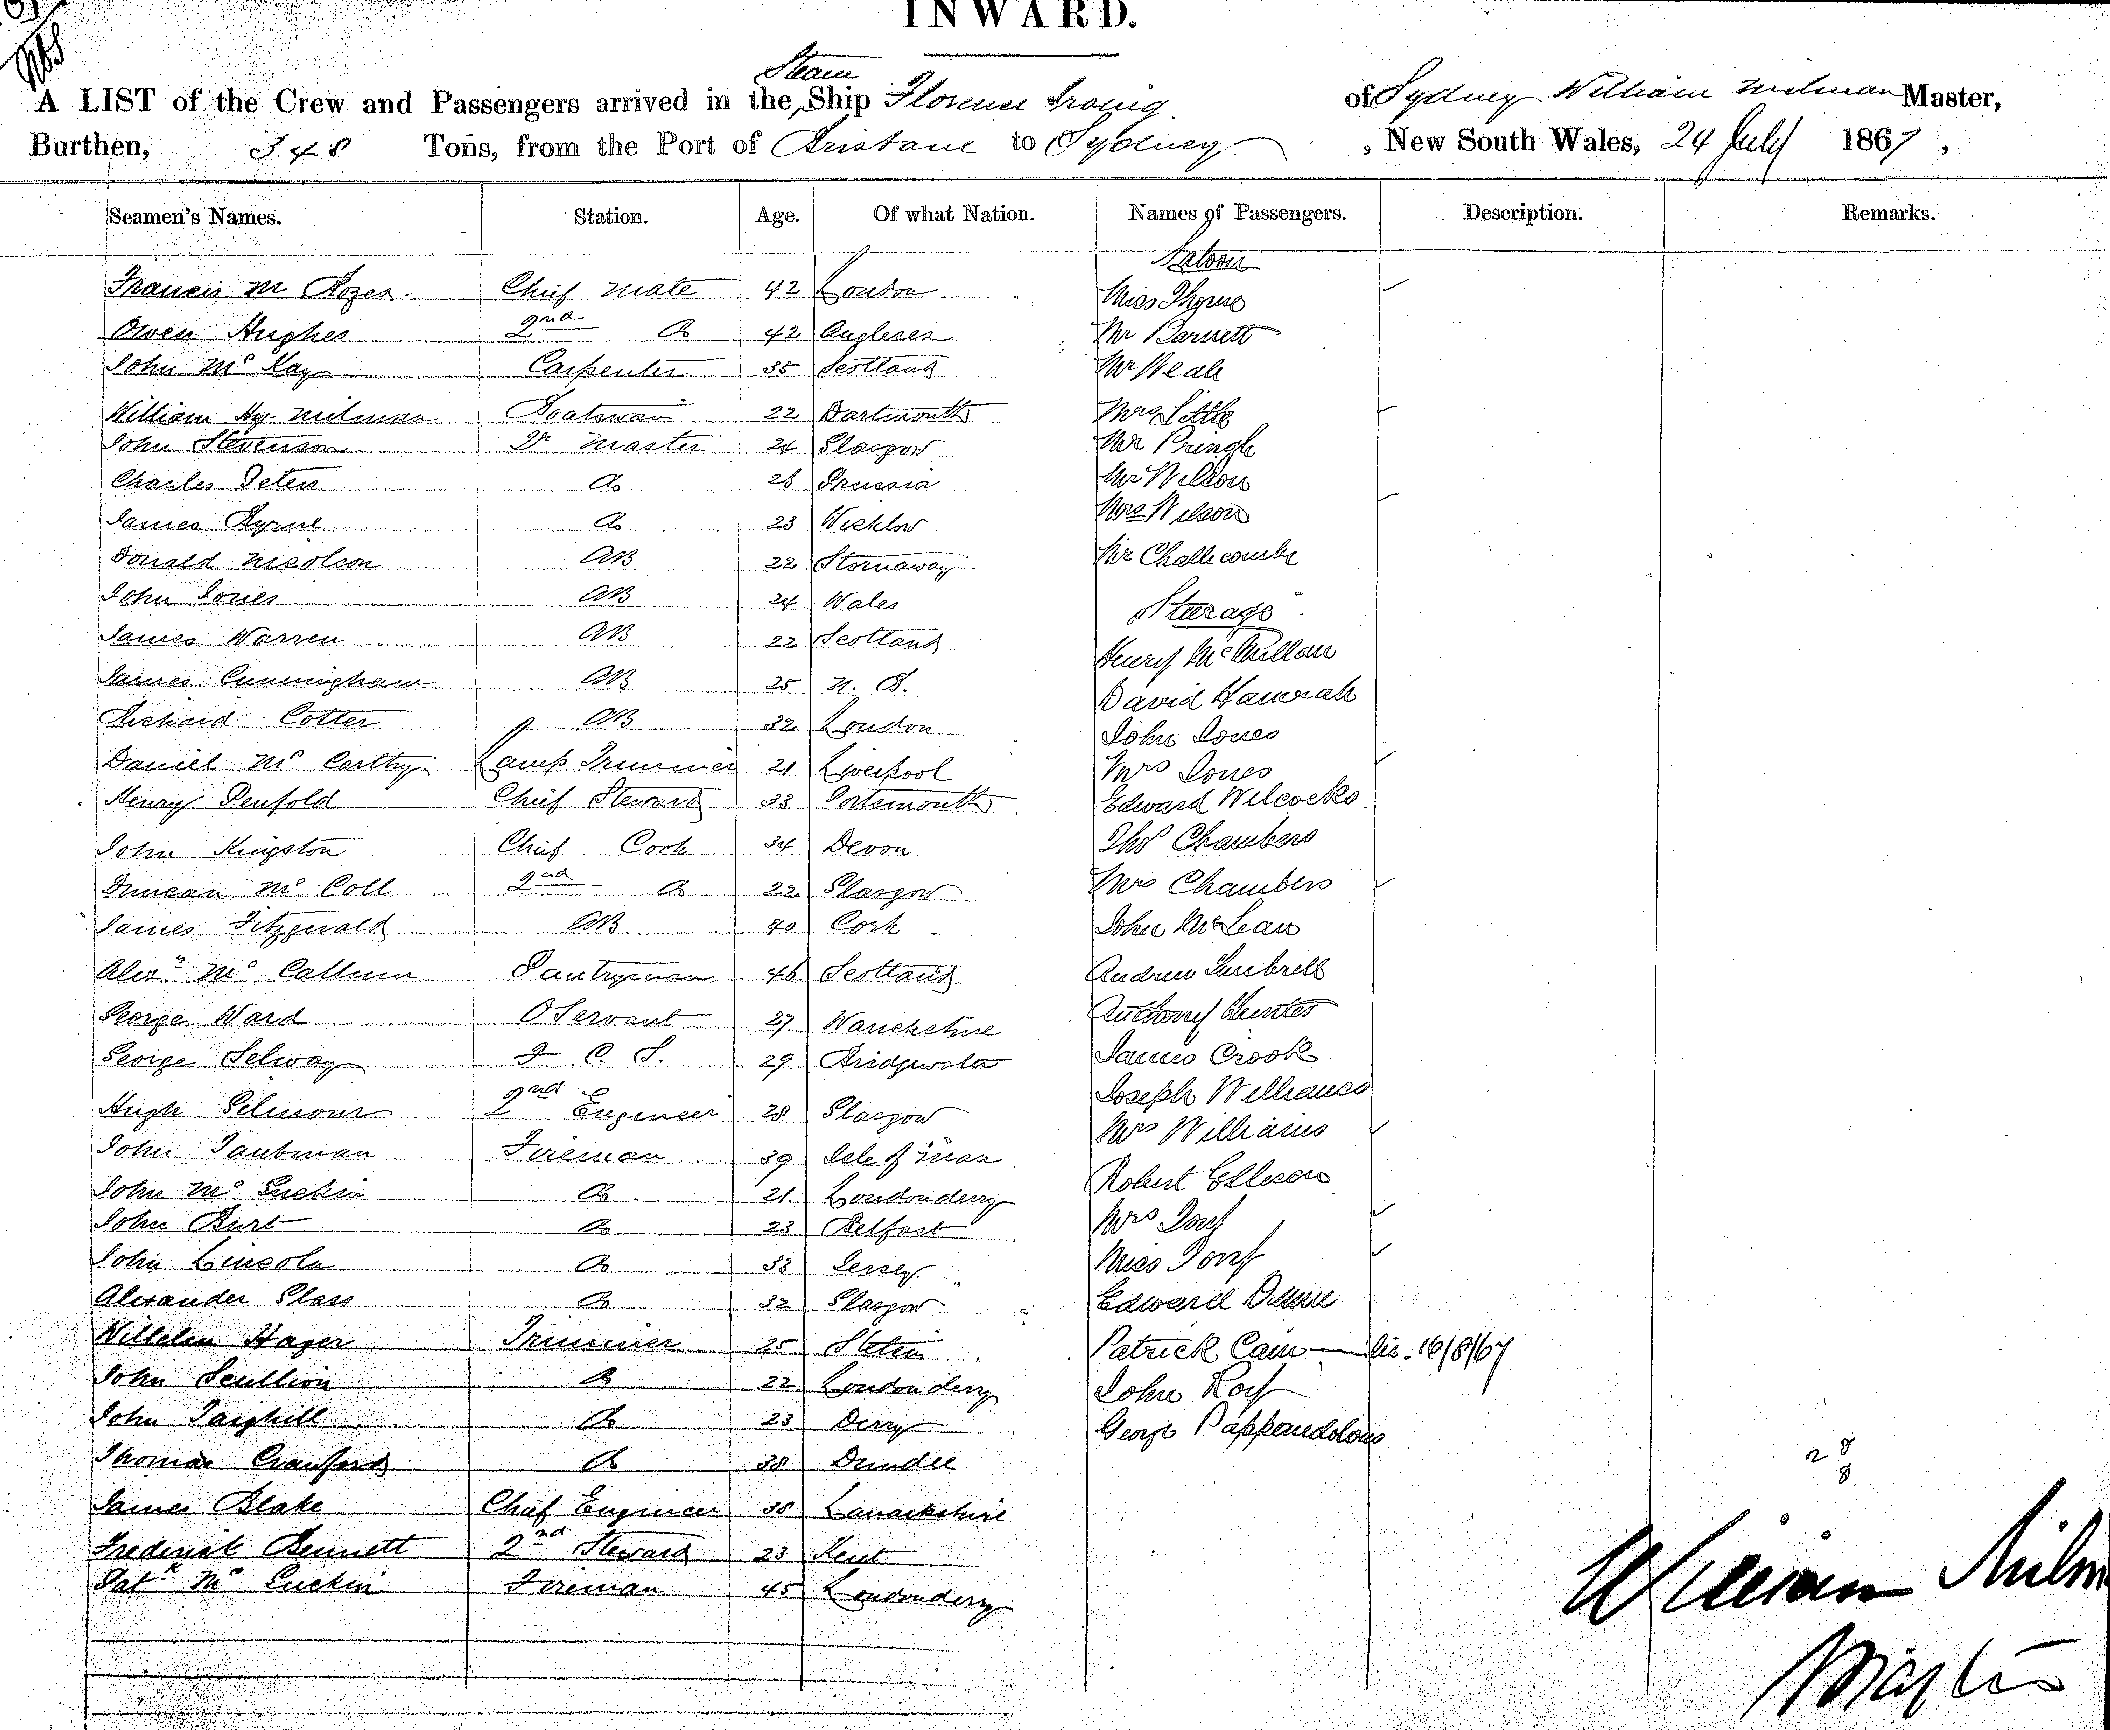 INWARD.
Steam
A LIST of the Crew and Passengers arrived in the Ship Florence Irving of Sydney William Milman Master,
Burthen, 348 Tons, from the Port of Brisbane to Sydney, New South Wales, 24 July 1867,
Seamen's Names. Station. Age. Of what Nation. Names of Passengers. Description. Remarks.
Saloon
Francis M Chief Mate 42 London Miss Thyrne
Owen Hughes 2nd Do 42 Anglesea Mr Barnett
John Mc Kay Carpenter 35 Scotland Mr Neale
William Hy Milman Boatswain 22 Dartmouth Mrs Little
John Stevenson Qr Master 24 Glasgow Mr Pringle
Charles Peters Do 28 Prussia Mr Wilson
James Byrne Do 23 Wicklow Mrs Wilson
Donald Nicolson AB 22 Stornaway Mr Challicombe
John Jones AB 24 Wales Steerage
James Warren AB 22 Scotland Henry McMillan
James Cunningham AB 25 N. B. David Hannah
Richard Cotter AB 32 London John Jones
Daniel Mc Carthy Lamp Trimmer 21 Liverpool Mrs Jones
Henry Penfold Chief Steward 33 Portsmouth Edward Wilcocks
John Kingston Chief Cook 34 Devon Thos Chambers
Duncan Mc Coll 2nd Do 22 Glasgow Mrs Chambers
James Fitzgerald AB 40 Cork John McLean
Alexr Mc Callum Pantryman 46 Scotland Andrew
George Ward O Servant 27 Warickshire Anthony Hunter
George Selway F C S. 29 Bridgwater James Crook
Hugh Gilmour 2nd Engineer 28 Glasgow Joseph Williams
John Taubman Fireman 39 Isle of Man Mrs Williams
John Mc Guckin Do 21 Londonderry Robert Ellison
John Burt Do 23 Belfast Mrs Dorf
John Lincoln Do 32 Jersey Miss Dorf
Alexander Glass Do 32 Glasgow Edward
Wilhelm Hager Trimmer 25 Stetin Patrick Cain — 16/8/67
John Scullion Do 22 Londonderry John Roy
John Do 23 Derry George Pappandolous
Thomas Crawford Do 38 Dundee
28
8
James Blake Chief Engineer 38 Lanarkshire
Frederick Bennett 2nd Steward 23 Kent
Patk Mc Guckin Fireman 45 Londonderry
William Milm
Master